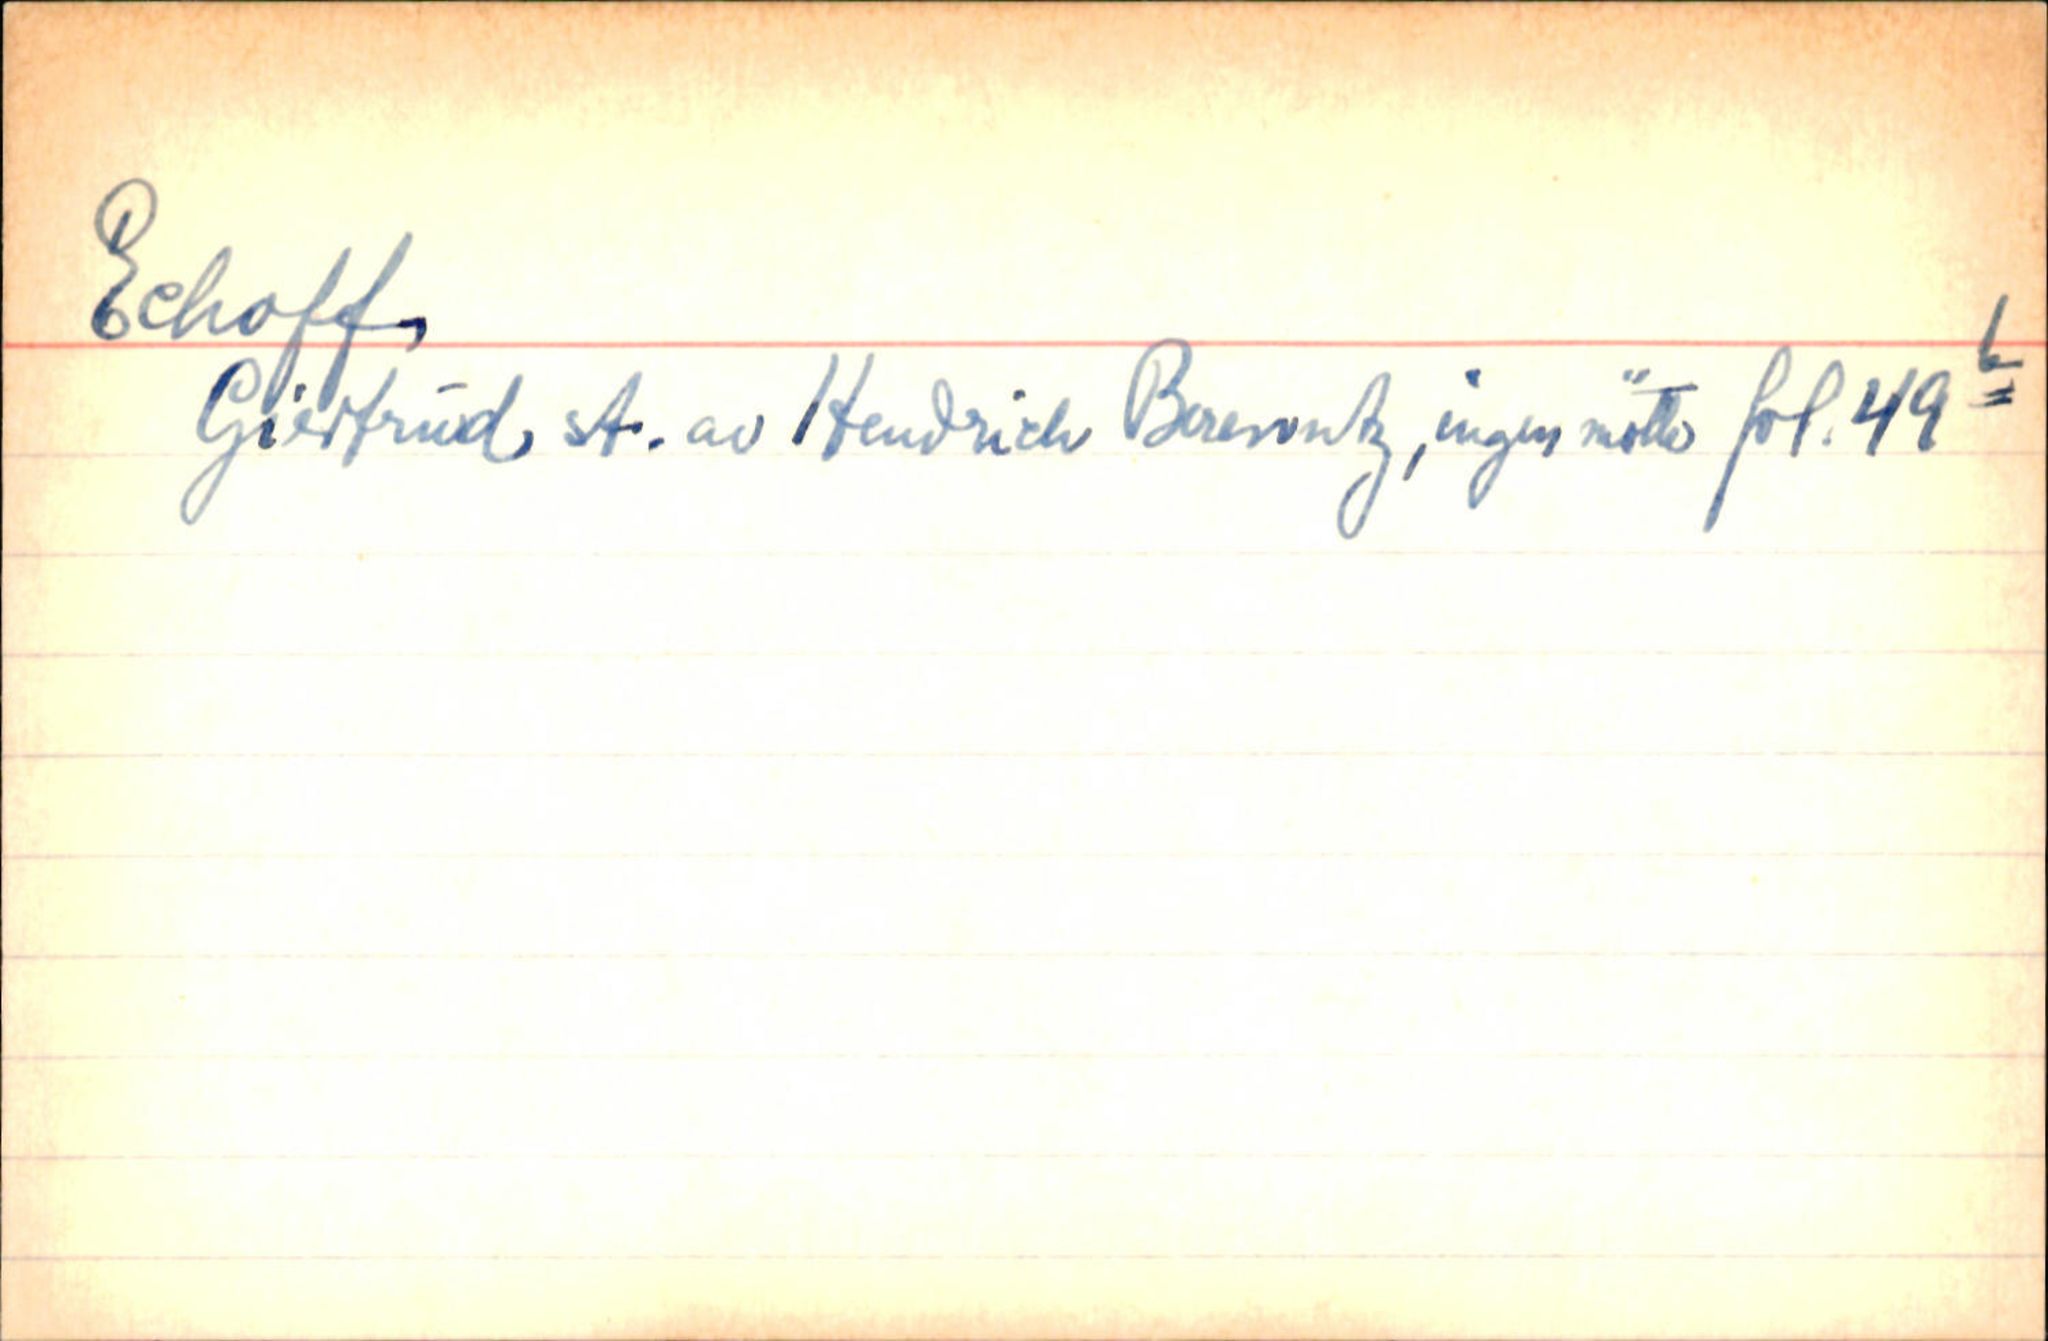 Echoff,
Giertrud, st. av Hendrich Berewntz, ingen mötte fol. 49 b